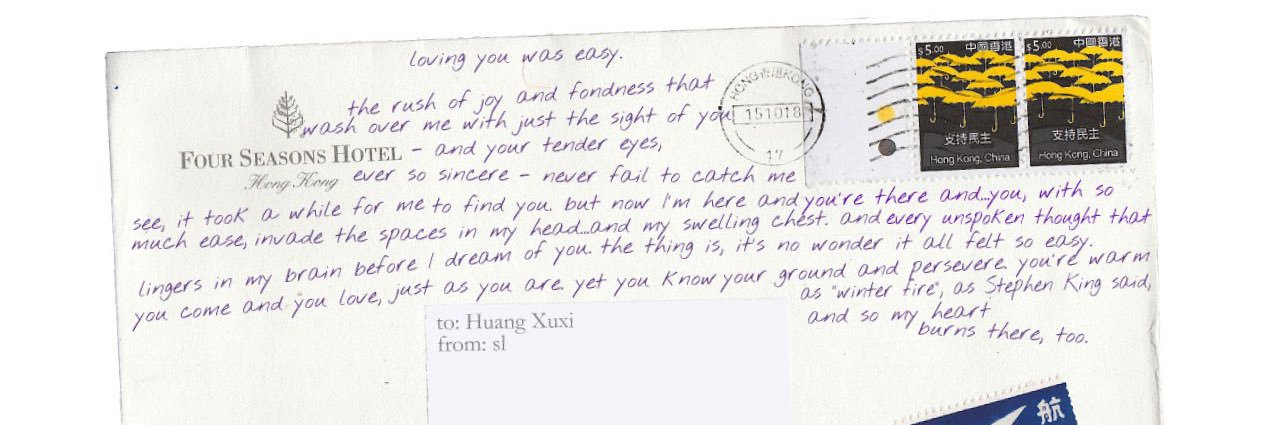 loving you was easy.
the rush of joy and fondness that
wash over me with just the sight of you
FOUR SEASONS HOTEL
Hong Kong
- and your tender eyes,
ever so sincere - never fail to catch me
see, it took a while for me to find you. but now I'm here and you're there and...you, with so
much ease, invade the spaces in my head...and my swelling chest. and every unspoken thought that
lingers in my brain before I dream of you. the thing is, it's no wonder it all felt so easy.
you come and you love, just as you are. yet you know your ground and persevere. you're warm
as "winter fire", as Stephen King said,
and so my heart
burns there, too.
HONG 香港 KONG
151018
17
$5.00 中國香港
支持民主
Hong Kong, China
$5.00 中國香港
支持民主
Hong Kong, China
to: Huang Xuxi
from: sl
航